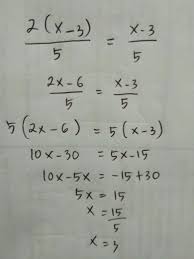 2(x-3)/5 = x-3/5
2x-6/5 = x-3/5
5(2x-6) = 5(x-3)
10x-30 = 5x-15
10x-5x = -15+30
5x = 15
x = 15/5
x = 3